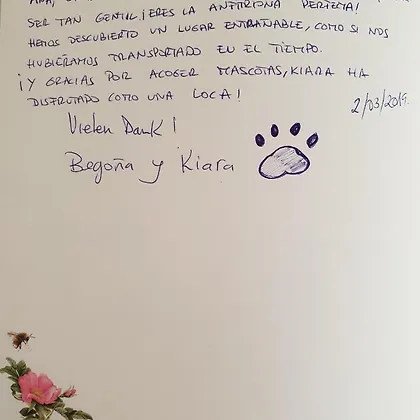 SER TAN GENTIL. ¡ERES LA ANFITRIONA PERFECTA!
HEMOS DESCUBIERTO UN LUGAR ENTRAÑABLE, COMO SI NOS
HUBIÉRAMOS TRANSPORTADO EN EL TIEMPO.
¡Y GRACIAS POR ACOGER MASCOTAS, KIARA HA
DISFRUTADO COMO UNA LOCA!
2/03/2019.
Vielen Dank!
Begoña y Kiara